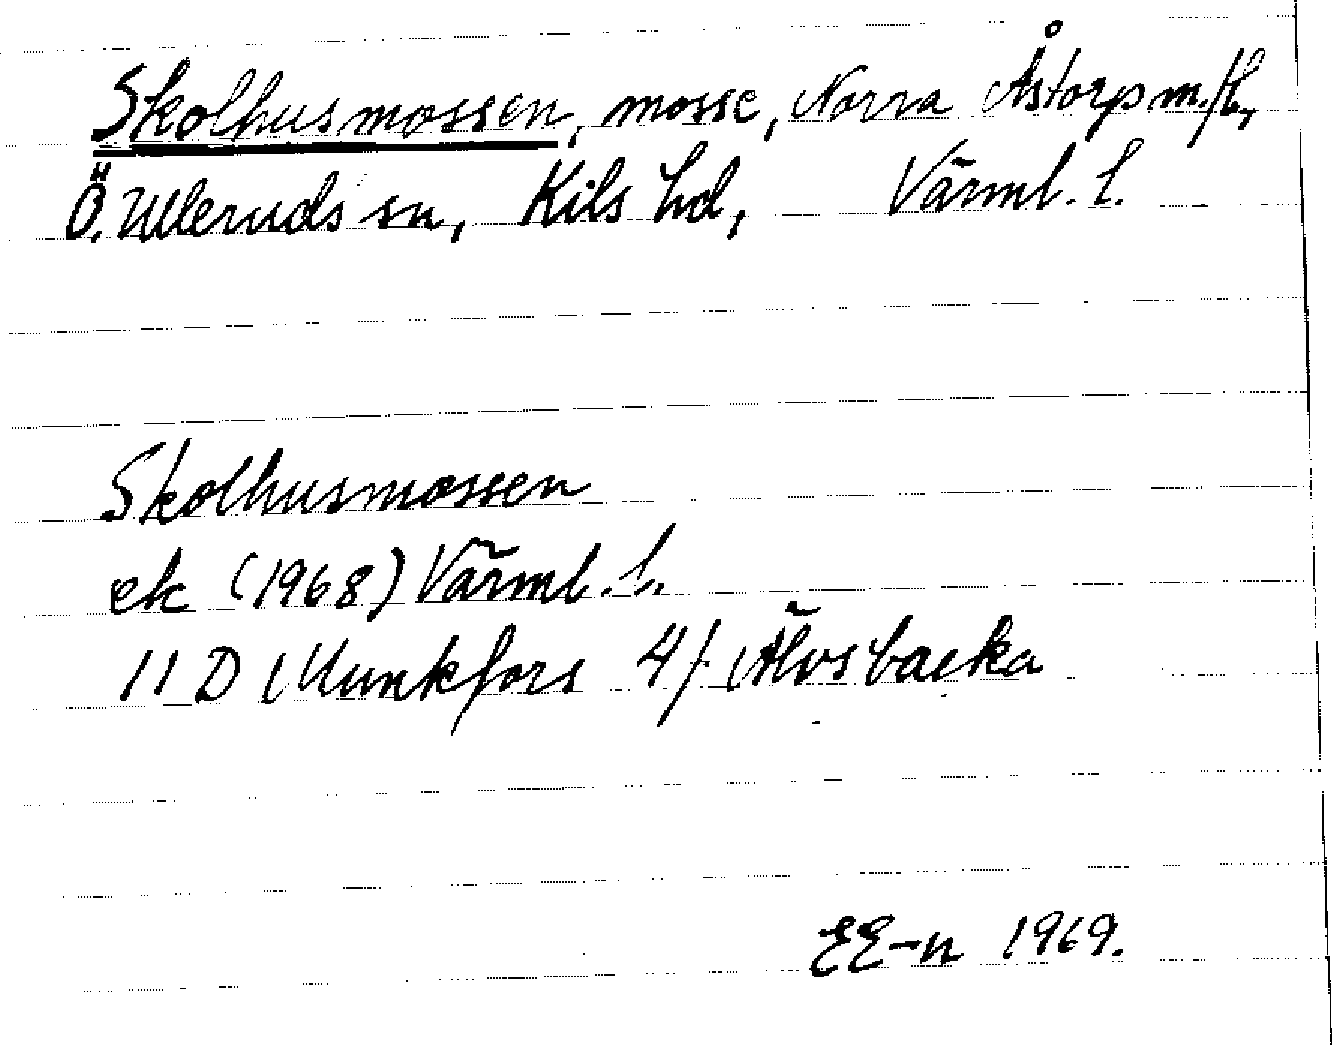 Skolhusmossen, mosse, Norra Åstorp m./fl.,
Ö. Ulleruds sn, Kils hd, Värml. l.
Skolhusmossen
ek (1968) Värml. l.
11 D Munkfors 4/ Älvsbacka
EE-n 1969.